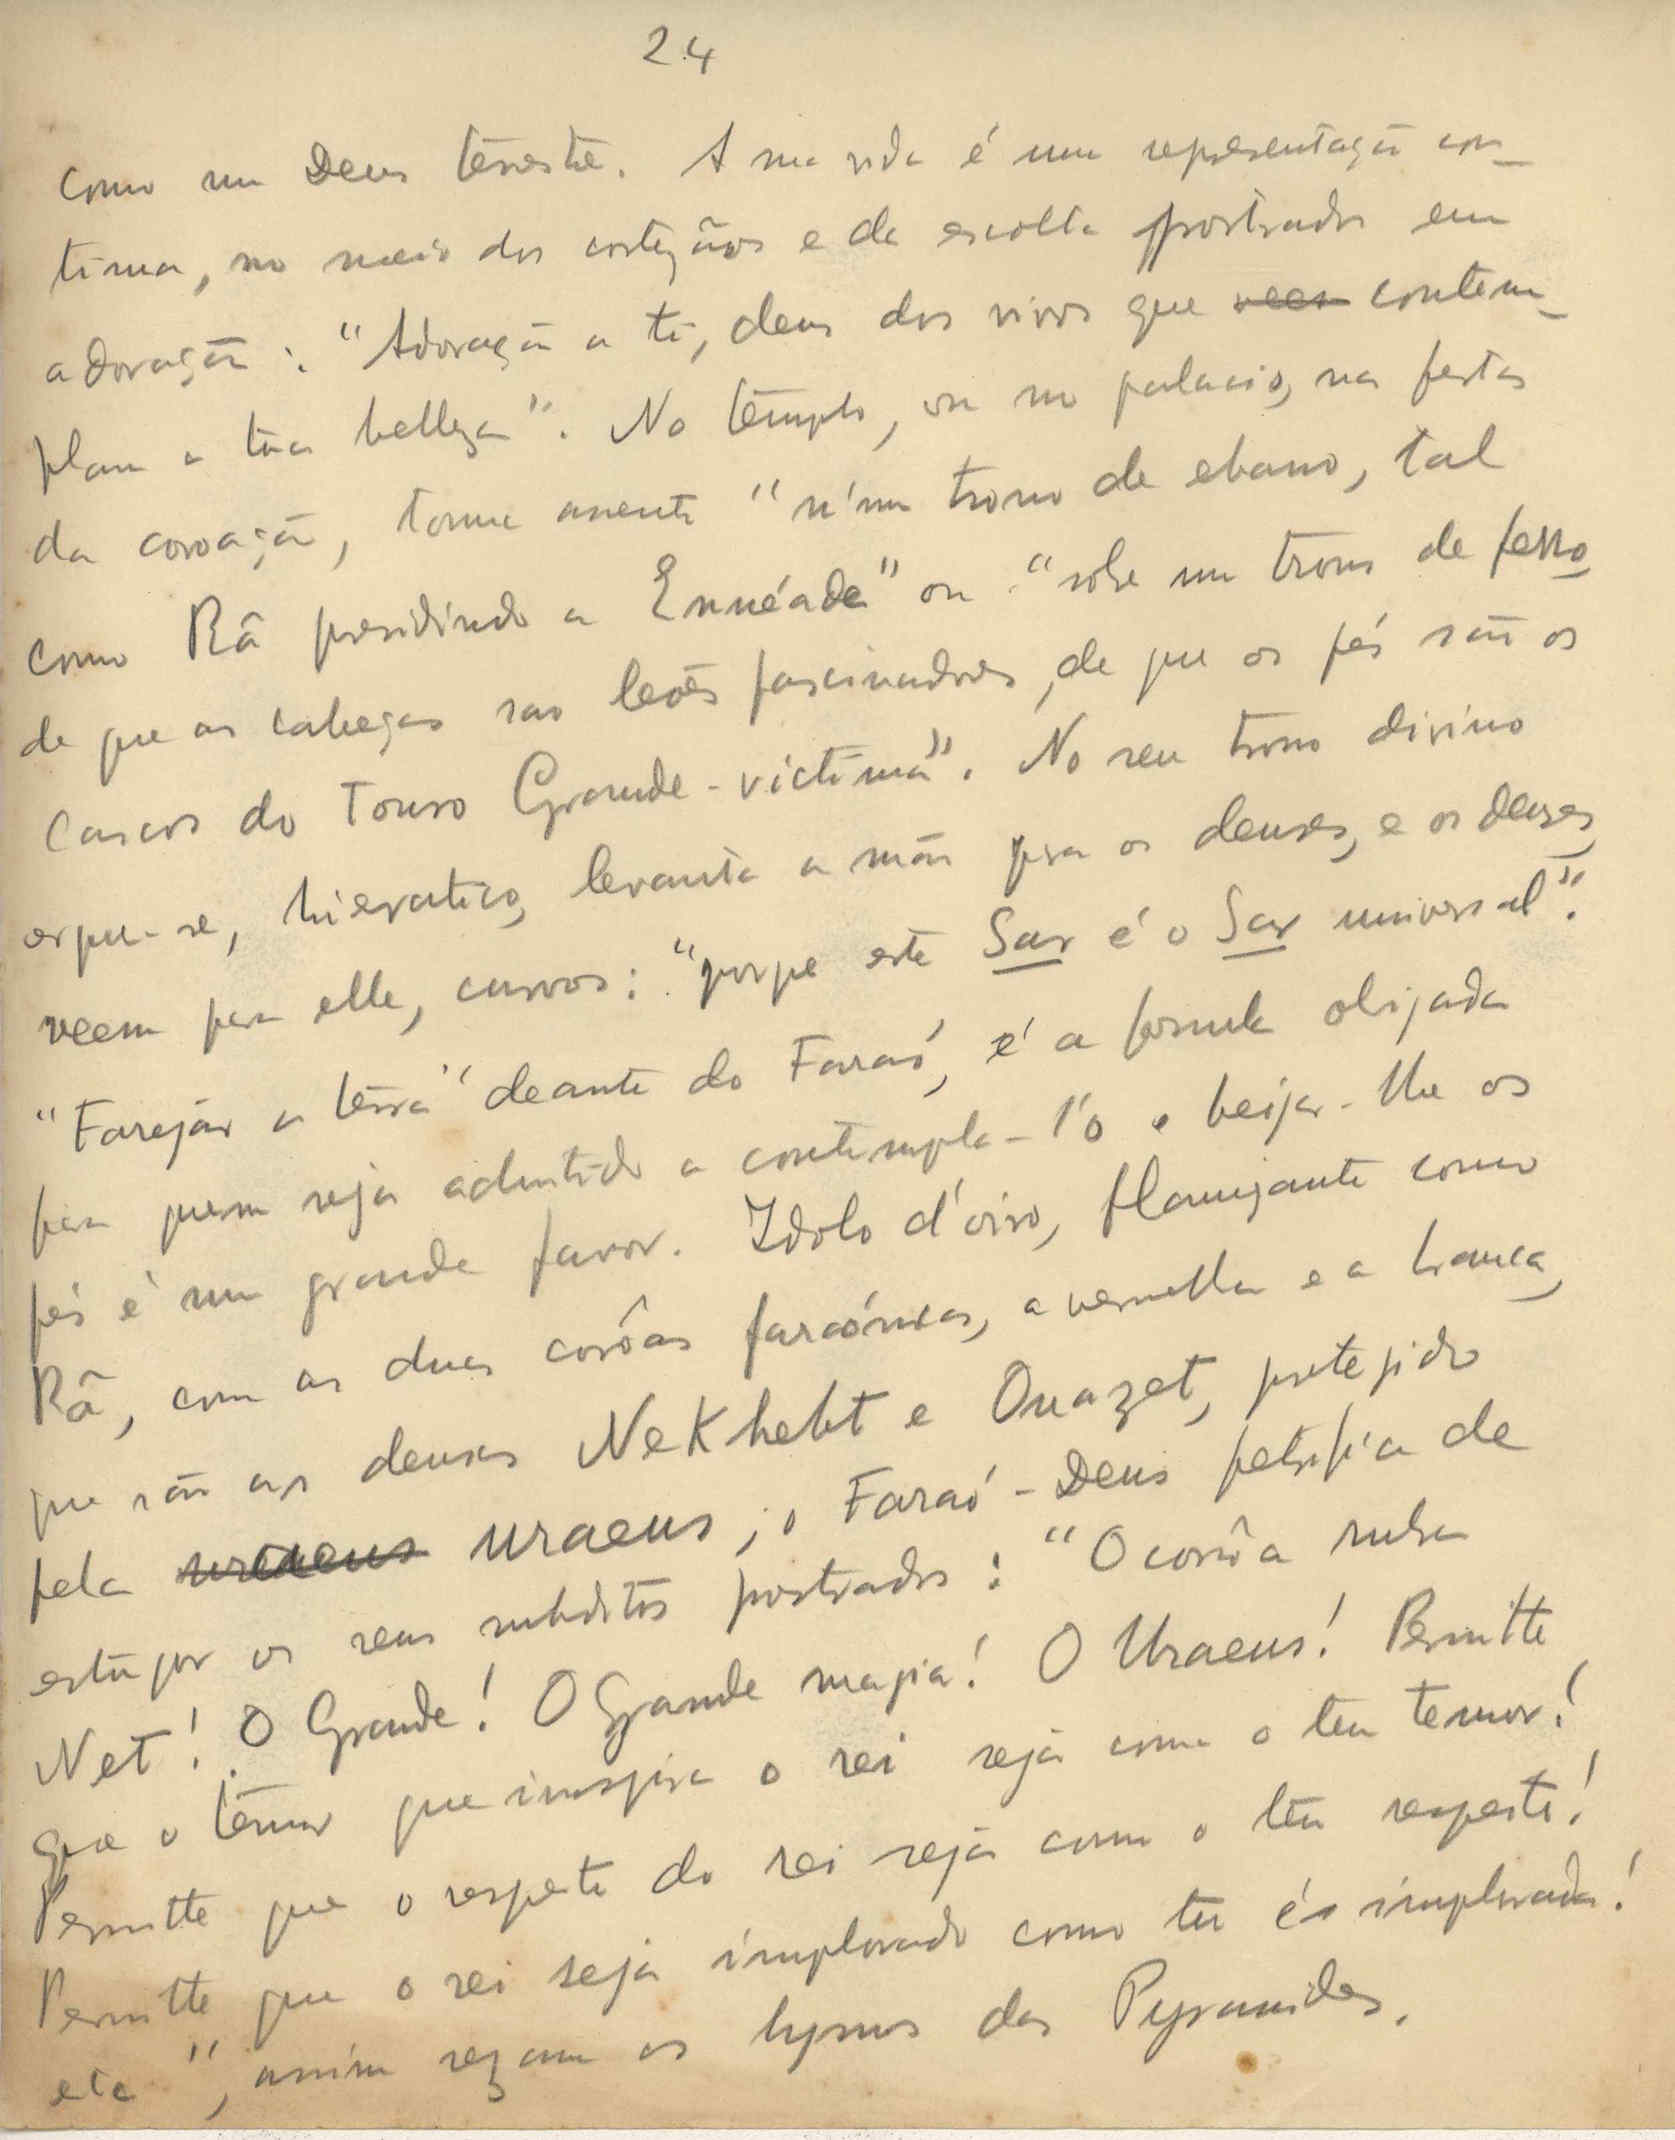 24
como um Deus terestre. A sua vida é uma representação con-
tinua, no meio dos cortezãos e da escolta prostrados em
adoração: "Adoração a ti, deus dos vivos que veem contem-
plam a tua belleza". No templo, ou no palacio, nas festas
da coroação, toma assento "n'um trono de ebano, tal
como Râ presidindo a Ennéade" ou "sobre um trono de ferro
de que as cabeças sao leões fascinadores, de que os pés são os
cascos do Touro Grande-victima". No seu trono divino
ergue-se, hieratico, levanta a mão pra os deuses, e os deuses,
veem pera elle, curvos: "porque este Sar é o Sar universal".
"Farejar a terra" deante do Faraó, é a formula obrigada
pera quem seja admitido a contempla-l'o e beijar-lhe os
pés é um grande favor. Idolo d'oiro, flamejante como
Râ, com as duas corôas faraónicas, a vermelha e a branca,
que são as deusas Nekhebt e Ouazet, protegido
pela uraeus uraeus, o Faraó-Deus petrifica de
estupor os seus subditos prostrados: "O corôa rubra
Net! O Grande! O Grande magia! O Uraeus! Permitte
que o temor que inspira o rei seja como o teu temor!
Permitte que o respeito do rei seja como o teu respeito!
Permitte que o rei seja implorado como tu és implorada!
etc", assim rezam os hymnos das Pyramides.